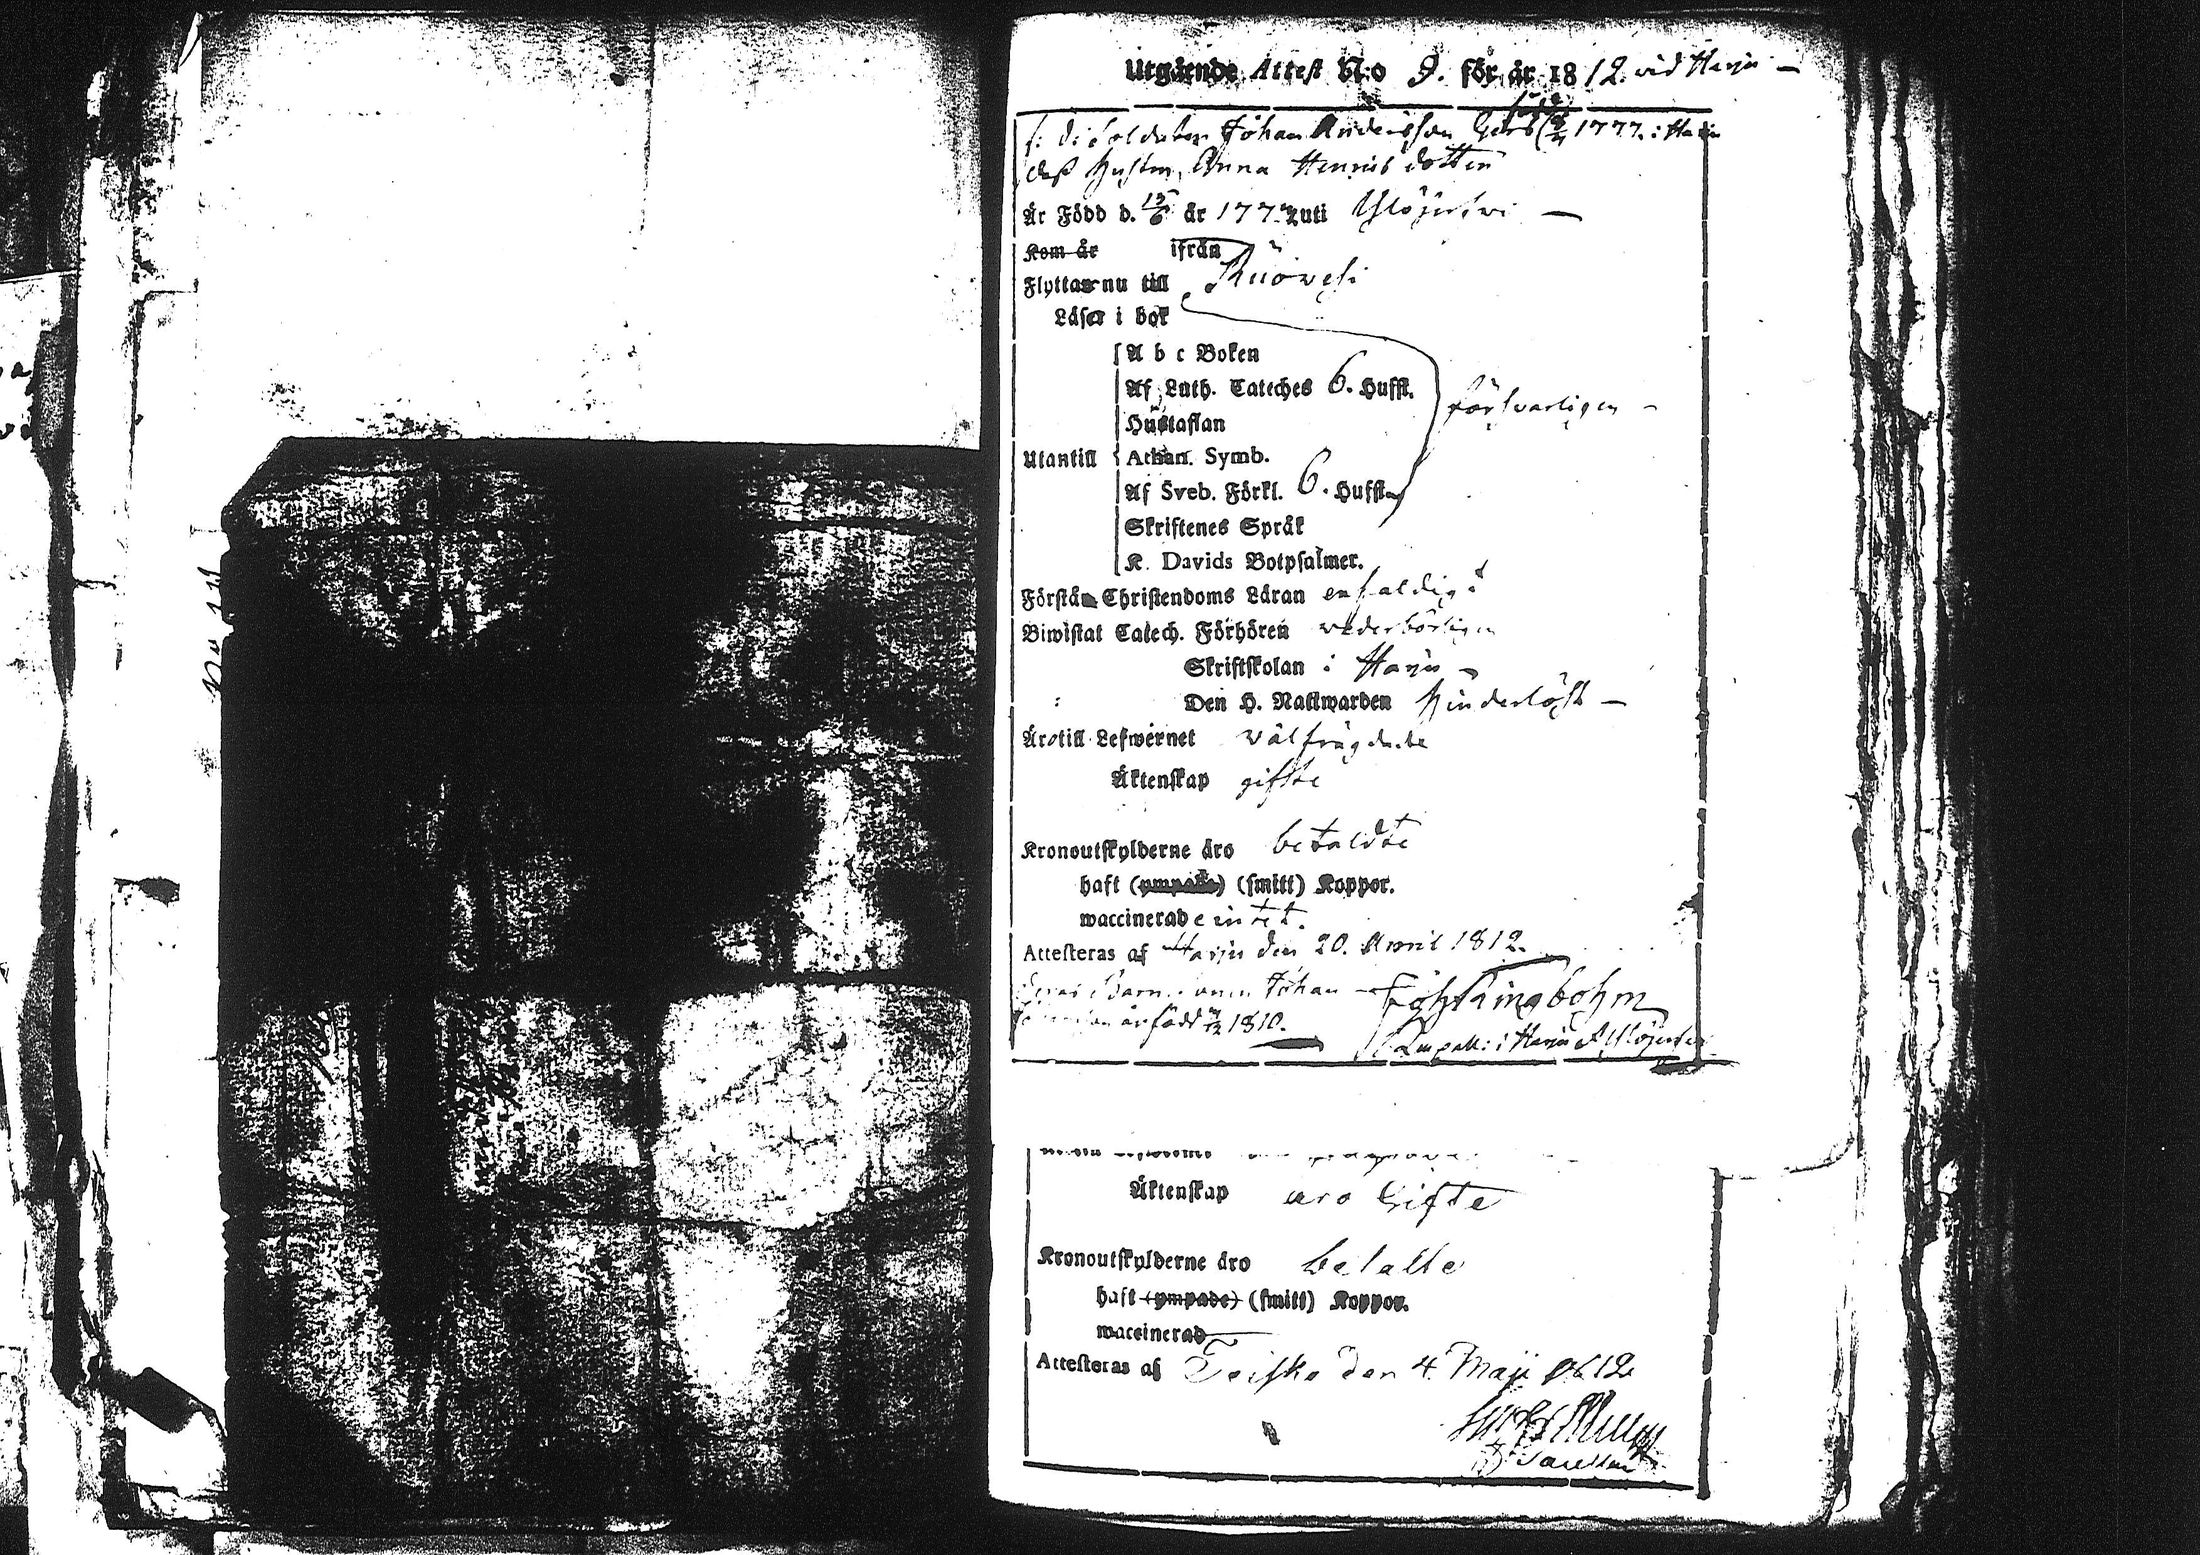 Utgående Attest N:o 9. för år 1812. wid Harju —
f: d: Soldaten Johan Andersson född 1777. i Harju
dess hustru, Anna Henricsdotter
Är Född d. 15/6 år 1772 uti Ylöjerfwi —
Kom år ifrån
Flyttar nu till Ruowesi
Läser i bok
A b c Boken
Af Luth. Cateches 6. Hufst.
försvarligen —
Hustaflan
Utantill Athan. Symb.
Af Sveb. Förkl. 6. Hufst.
Skriftenes Språk
K. Davids Botpsalmer.
Förstå Christendoms Läran enfaldigt
Biwistat Catech. Förhören wederbörligen
Skriftskolan i Harju —
Den H. Nattwarden hinderlöst —
Äro till Lefwernet välfrägdade
Äktenskap gifte
Kronoutskylderne äro betaldte
haft (ympade) (smitt) Koppor.
waccinerade intet.
Attesteras af Harju den 20. April 1812.
Barn Johan
är född 1810.
i Harju & Ylöjerfwi
Äktenskap äro Gifte
Kronoutskylderne äro betalte
haft (ympade) (smitt) Koppor.
waccinerad
Attesteras af Teisko den 4 Maji 1812